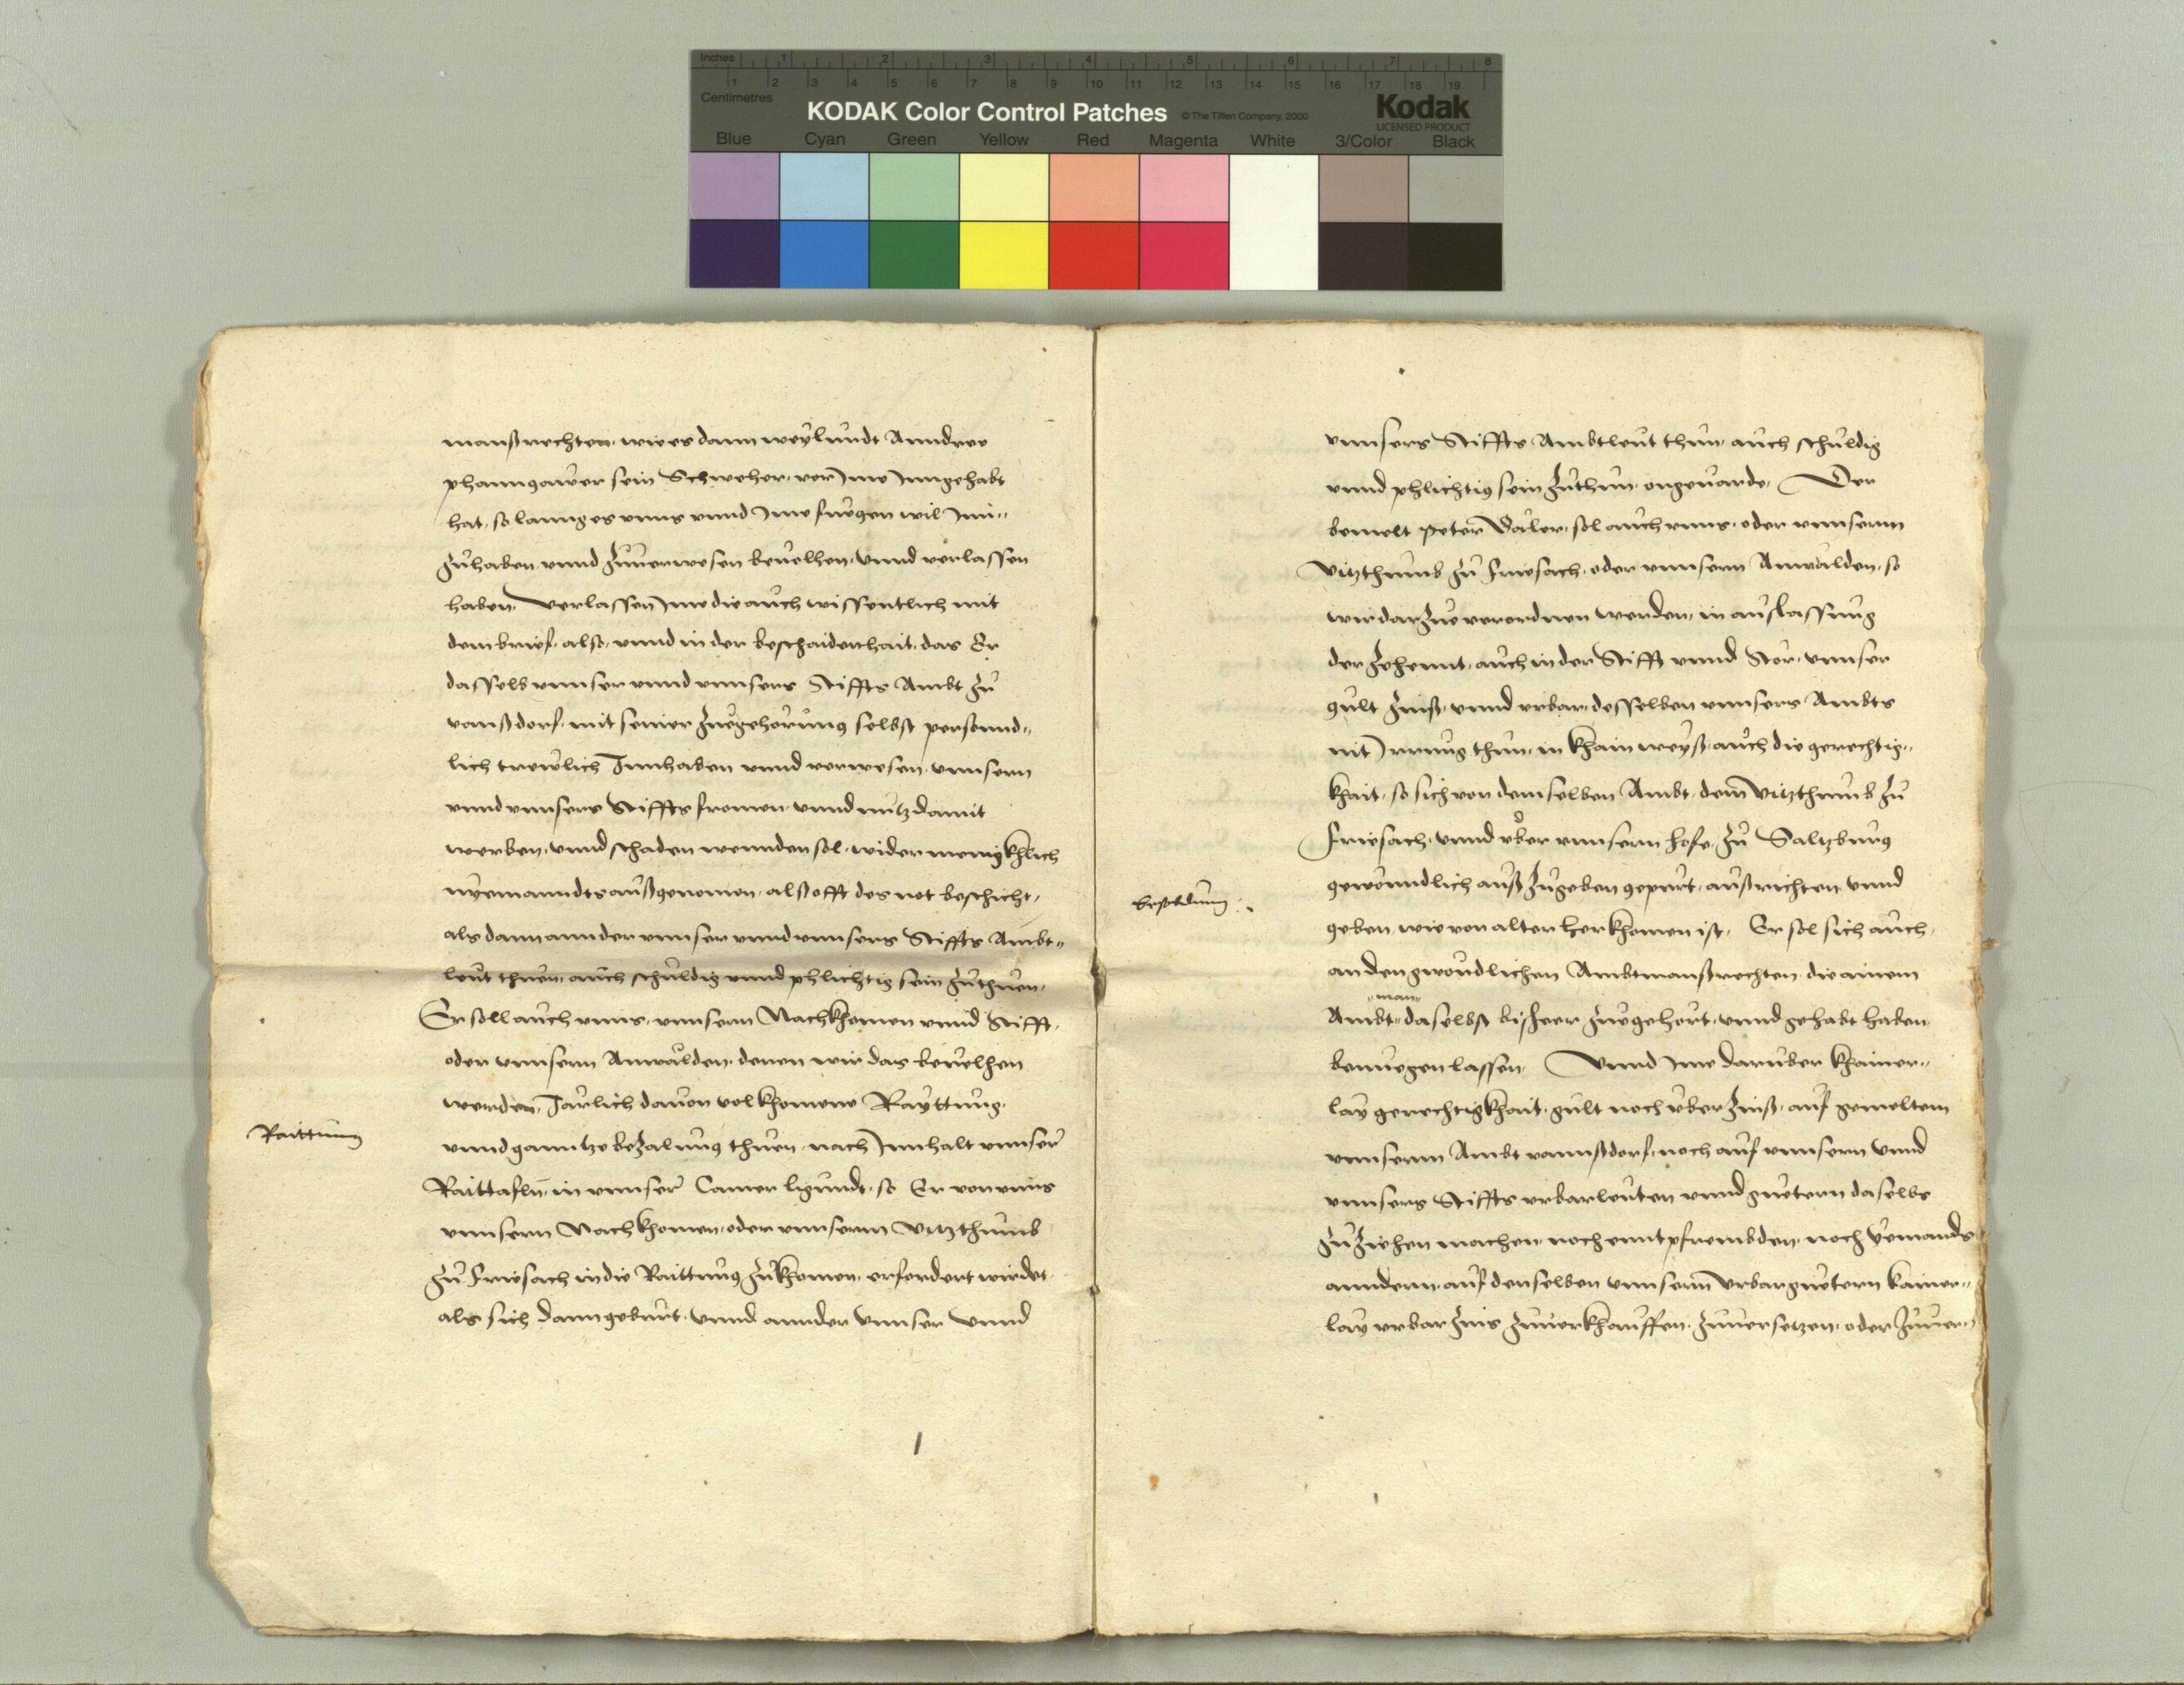 Inches 1 2 3 4 5 6 7 8
1 2 3 4 5 6 7 8 9 10 11 12 13 14 15 16 17 18 19
Centimetres
KODAK Color Control Patches © The Tiffen Company, 2000 Kodak
LICENSED PRODUCT
Blue Cyan Green Yellow Red Magenta White 3/Color Black
manßrechten, wie es dann weylundt Anndree
phanngawer sein Schweher, vor Ime Inngehabt
hat, so lanng es vnns vnnd Ime fuegen wil Inn-
zuhaben vnnd zuuerwesen beuelhen, vnnd verlassen
haben, Verlassen Ime die auch wissentlich mit
dem brief, also, vnnd in der beschaidenhait, das Er
dasselb vnnser vnnd vnnsers Stiffts Ambt zu
vanßdorf, mit seiner zuegehorung selbst personnd-
lich trewlich Innhaben vnnd verwesen, vnnsern
vnnd vnnsers Stiffts fromen, vnnd nutz damit
werben, vnnd schaden wennden sol, wider menigkhlich
nyemanndts außgenomen, als offt des not beschicht,
als dann annder vnnser vnnd vnnsers Stiffts Ambt-
leut thuen auch schuldig vnnd phlichtig sein zuthuen,
Er soll auch vnns, vnnsern Nachkhomen vnnd Stifft,
oder vnnsern Anwälden, denen wir das beuelhen
werden, Järlich dauon volkhomene Rayttung,
Raittung
vnnd ganntze bezalung thuen, nach Innhalt vnnser
Raittafln, in vnnser Camer ligundt, so Er von vnns
vnnsern Nachkhomen, oder vnnserm Vitzthumb
zu Friesach in die Raittung zukhomen, erfordert wirdet
als sich dann geburt, vnnd annder vnnser vnnd
vnnsers Stiffts Ambtleut thun, auch schuldig
vnnd phlichtig sein zuthun, ongeuarde, Der
bemelt Peter , sol auch vnns, oder vnnserm
Vitzthumb zu Friesach, oder vnnsern Anwälden, so
wir darzue verordnen werden, in auslassung
der zehennt, auch in der Stifft vnnd Stör, vnnser
gült zinß, vnnd vrbar, desselben vnnsers Ambts
nit Irrung thun, in khain weyß, auch die gerechtig-
khait, so sich von demselben Ambt, dem Vitzthumb zu
Friesach, vnnd vber vnnsern hofe, zu Saltzburg
gewonndlich auß zugeben gepurt, außrichten vnnd
geben, wie von alter herkhomen ist, Er sol sich auch,
an den gwondlichen Ambtmanßrechten, die ainem
-man-
Ambt- daselbst bisheer zuegehort, vnnd gehabt haben,
benuegen lassen, Vnnd Ime darüber khainer-
lay gerechtigkhait, gült noch vberzinß, auf gemeltem
vnnserm Ambt vannßdorf, noch auf vnnsern vnnd
vnnsers Stiffts vrbarleuten vnnd guetern daselbs
zuziehen machen, noch enntpfrembden, noch yemands
anndern, auf denselben vnnsern vrbarguetern kainer-
lay vrbarzins zuuerkhauffen, zuuersetzen, oder zuuer-